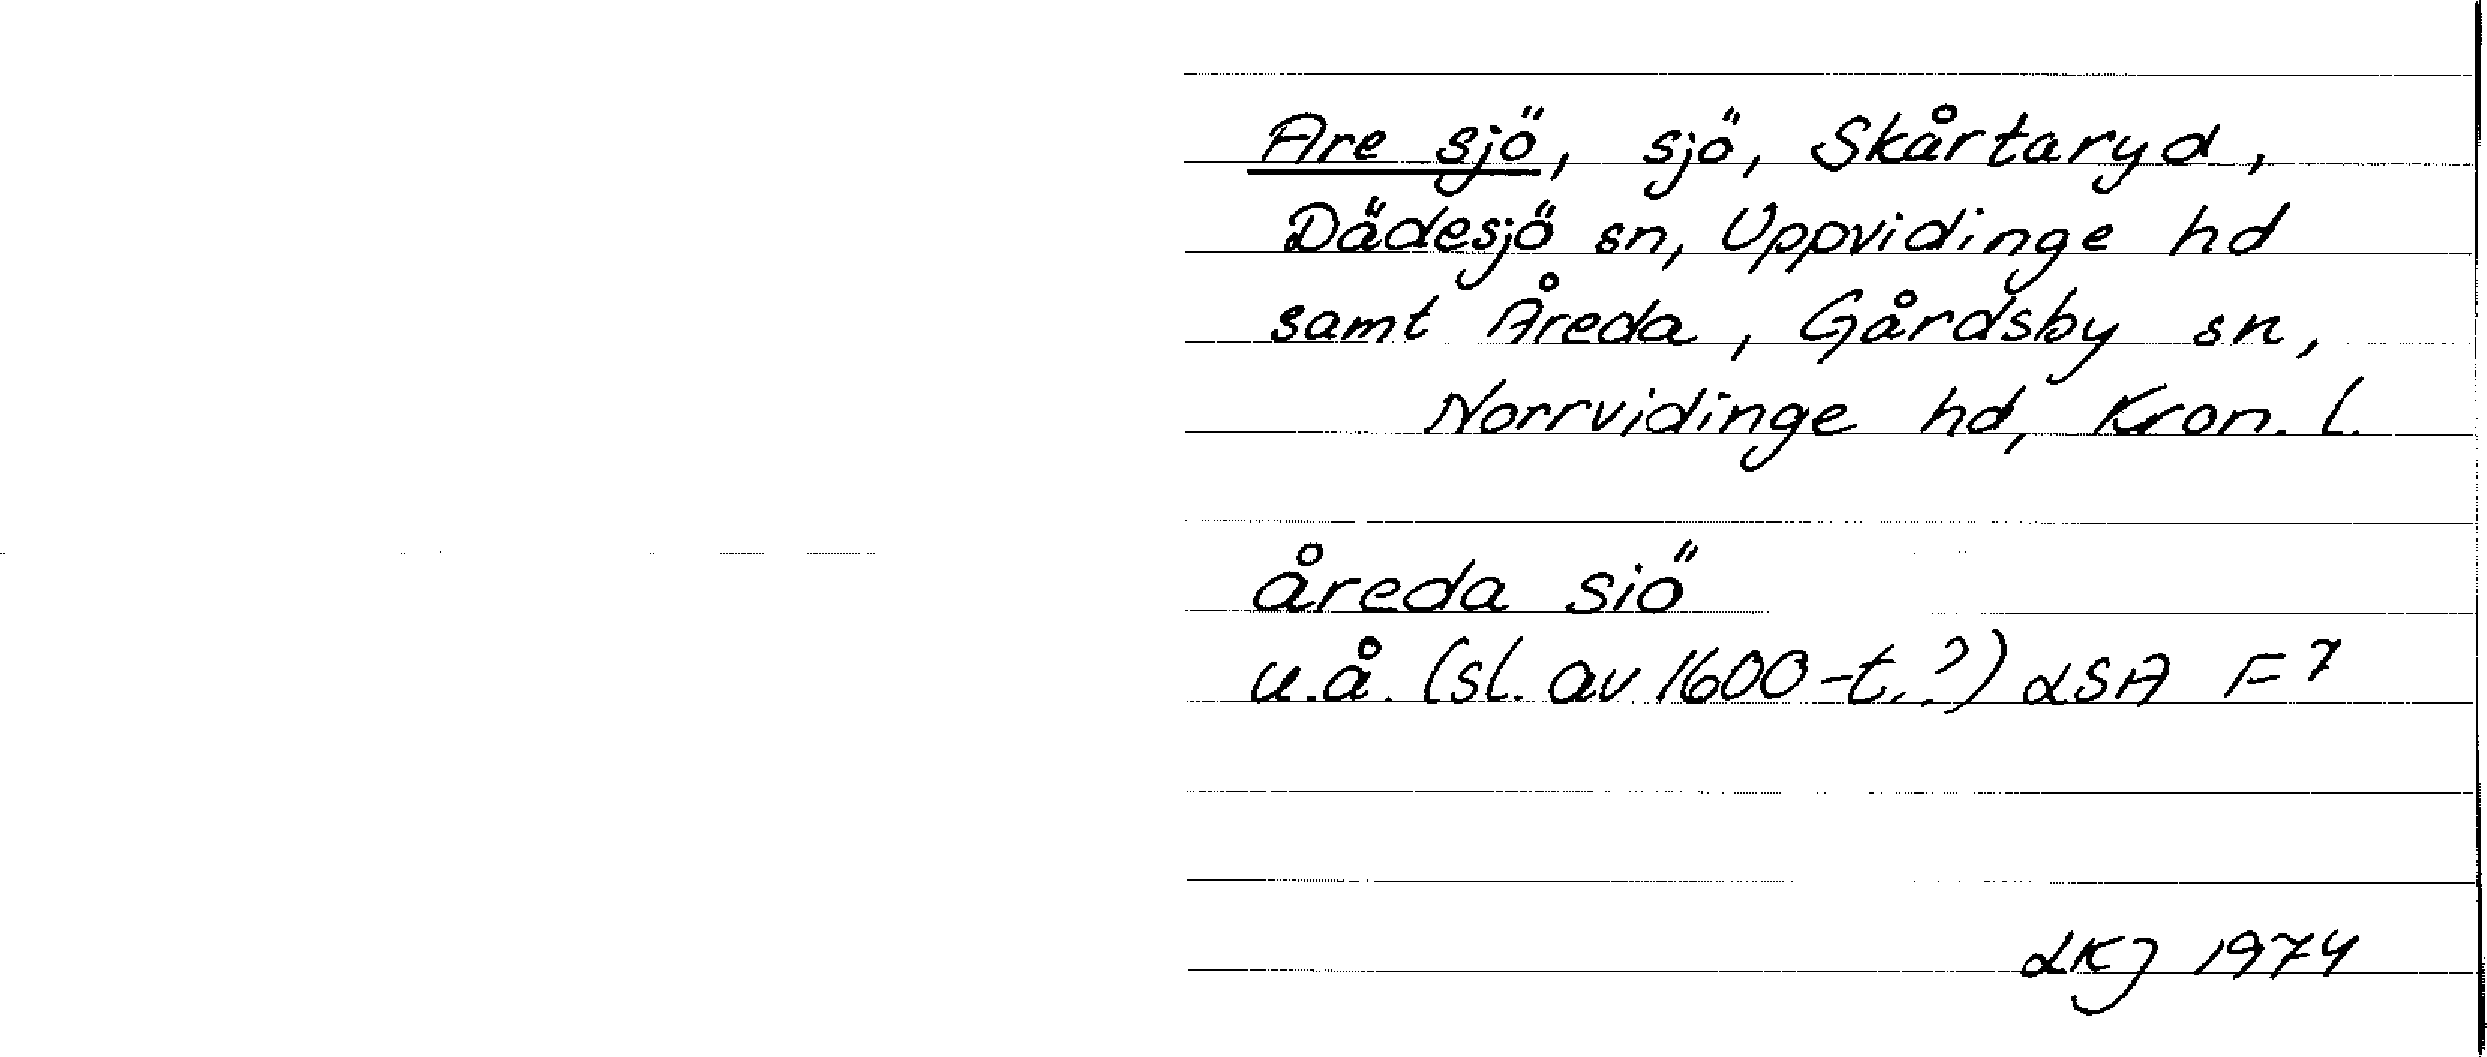 Are sjö, sjö, Skårtaryd,
Dädesjö sn, Uppvidinge hd
samt Åreda, Gårdsby sn,
Norrvidinge hd, Kron. l.
åreda siö
u.å. (sl. av 1600-t.?) LSA F7
LKJ 1974